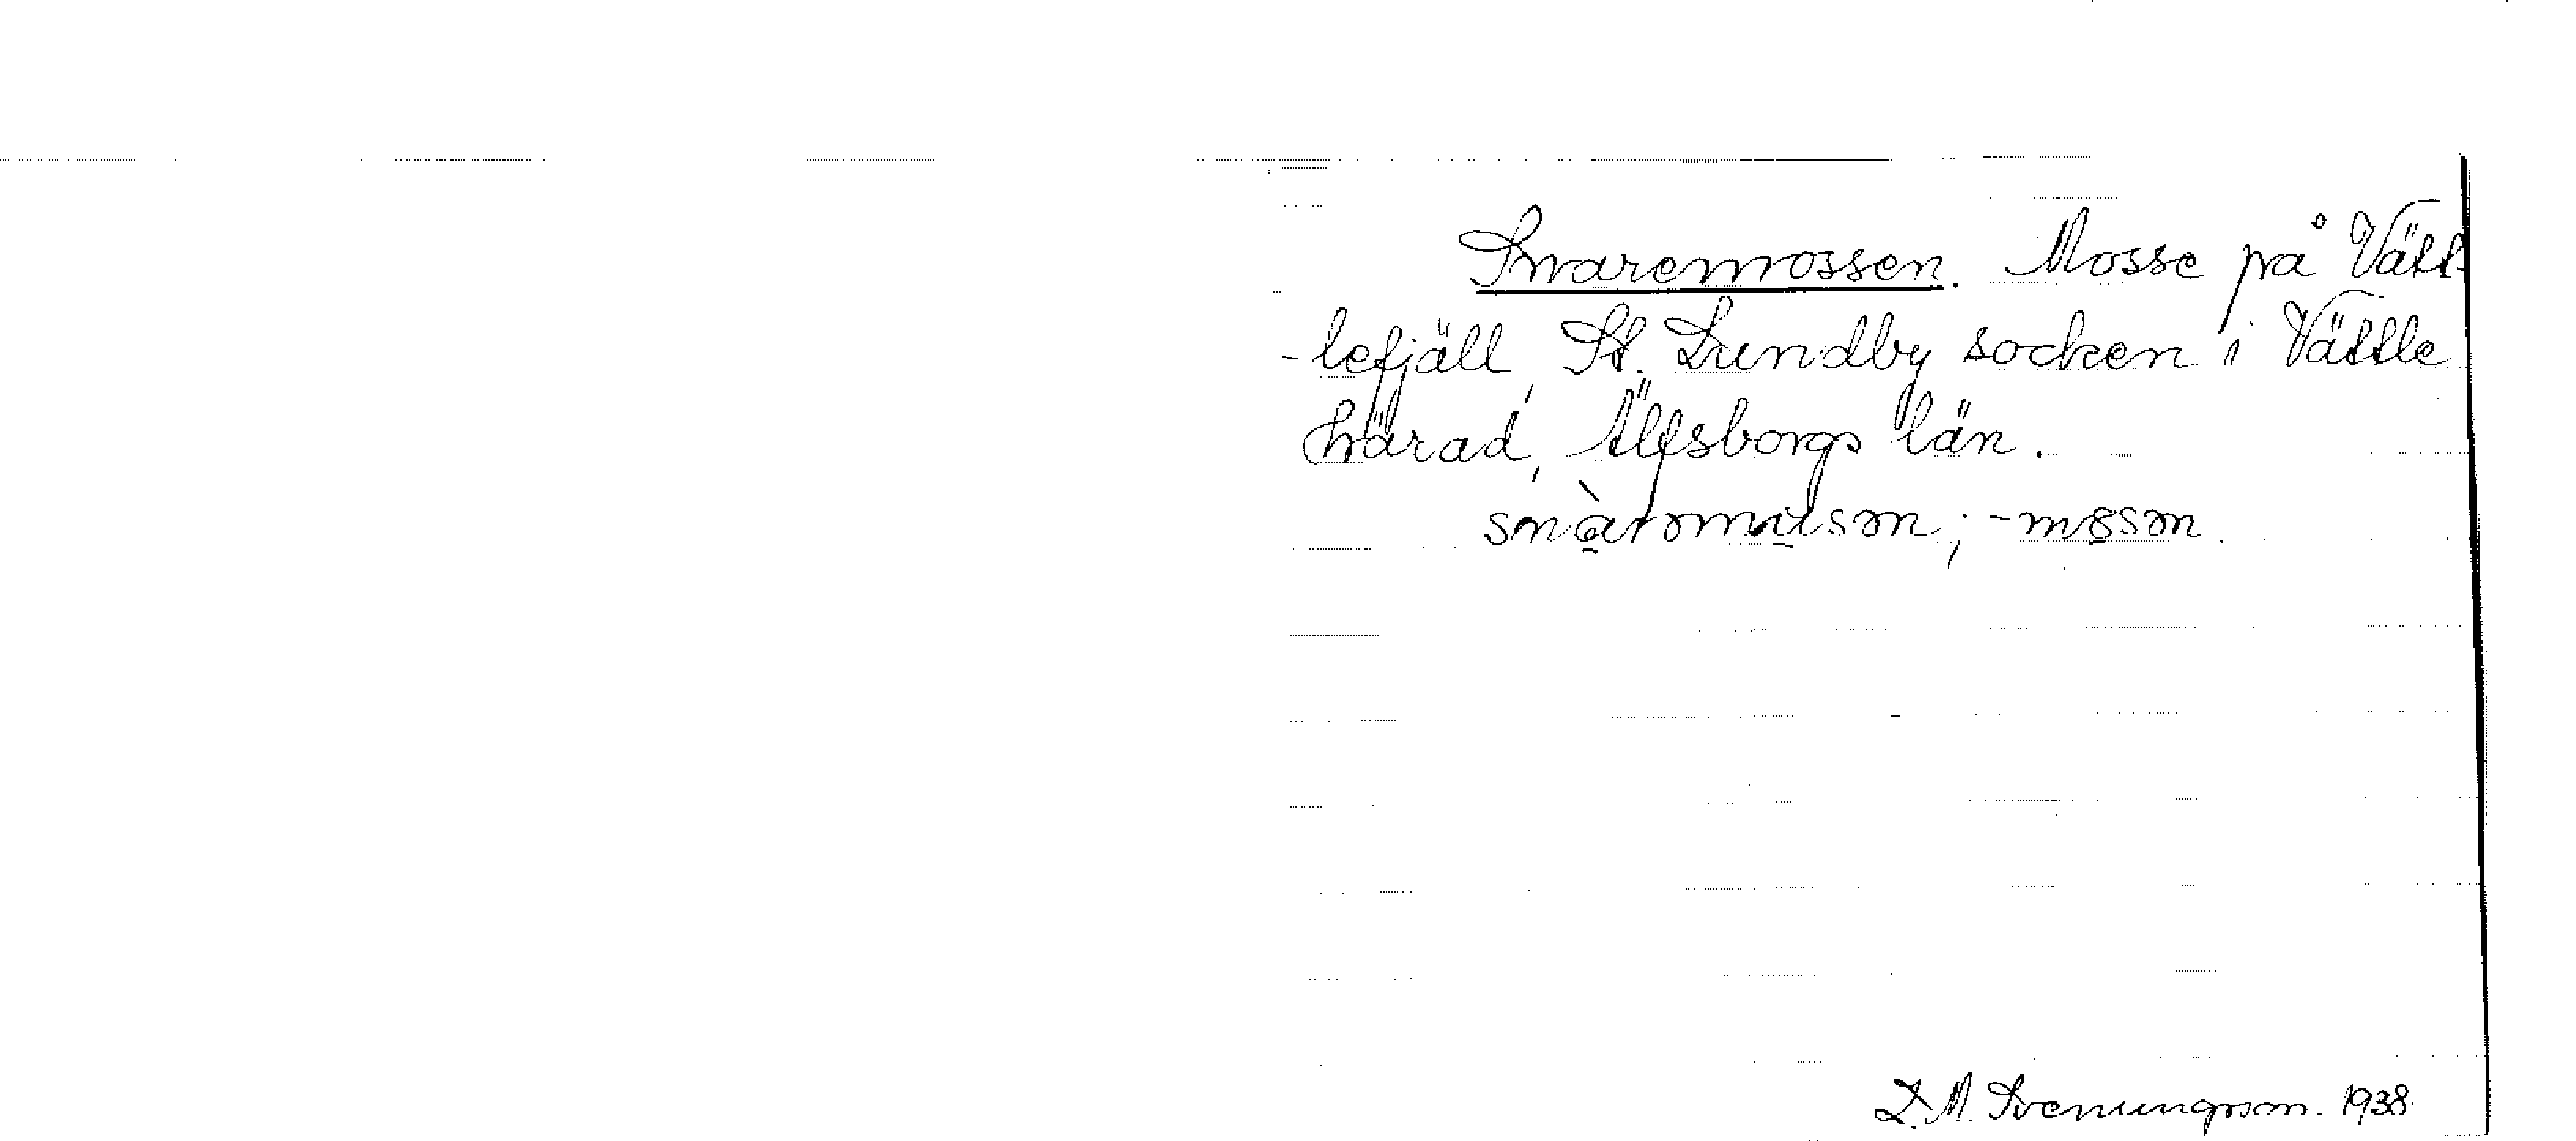 Snaremossen. Mosse på Vätt-
-lefjäll, St. Lundby socken i Vättle
härad, Älfsborgs län.
snàrəmusən; -mɷsən.
L. M. Svenungsson. 1938.